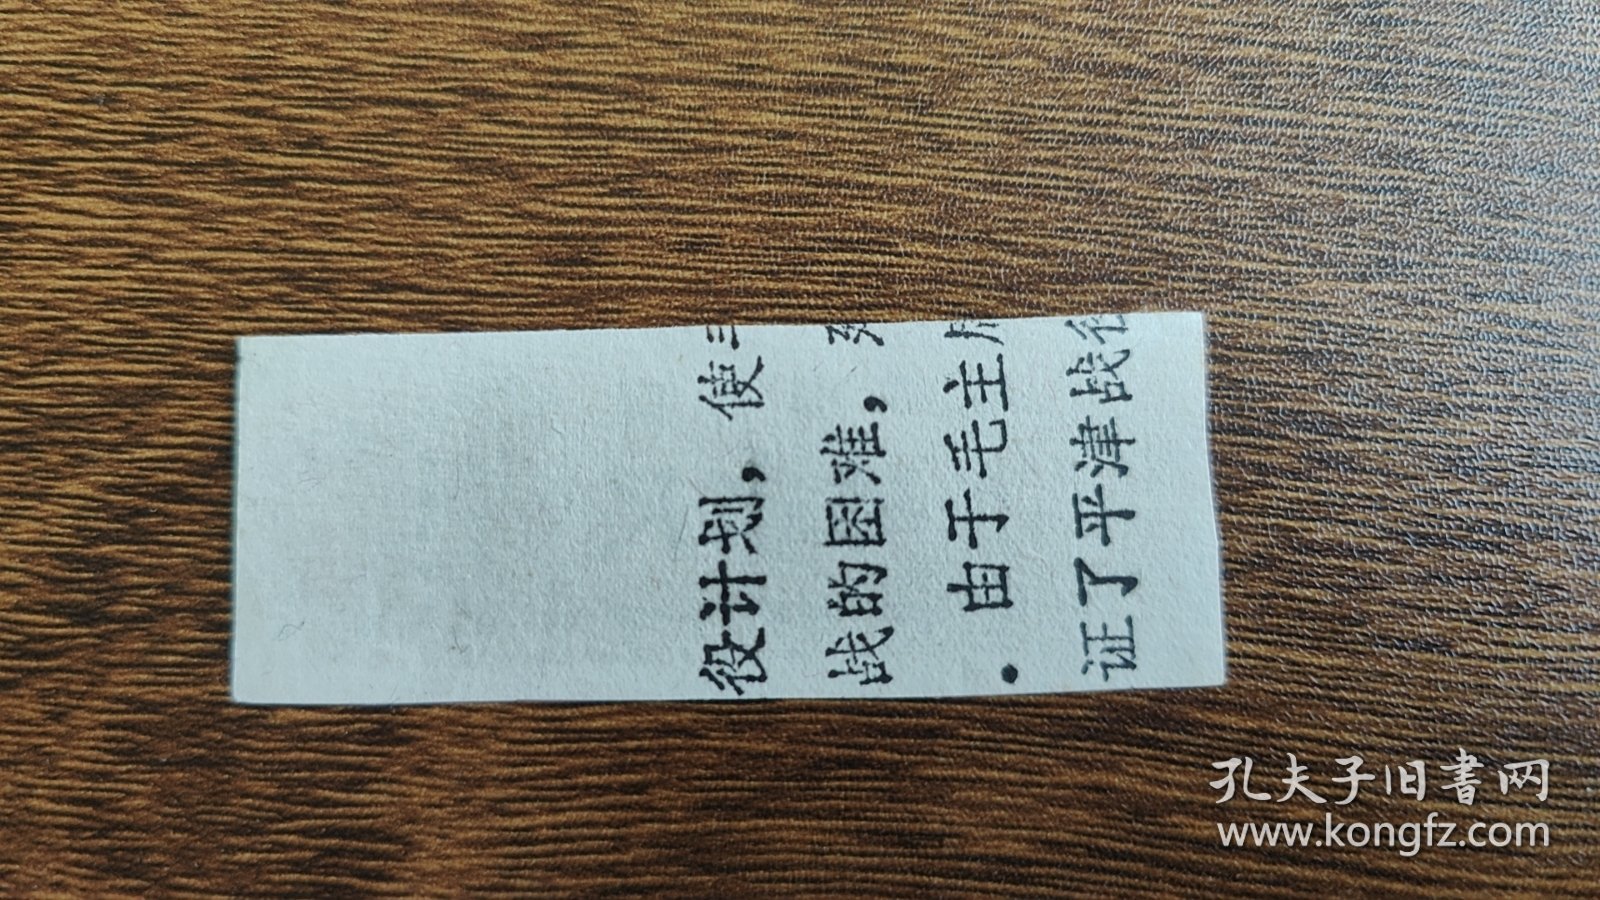 役计划，使
战的困难，
．由于毛主
证了平津战
孔夫子旧書网
www.kongfz.com